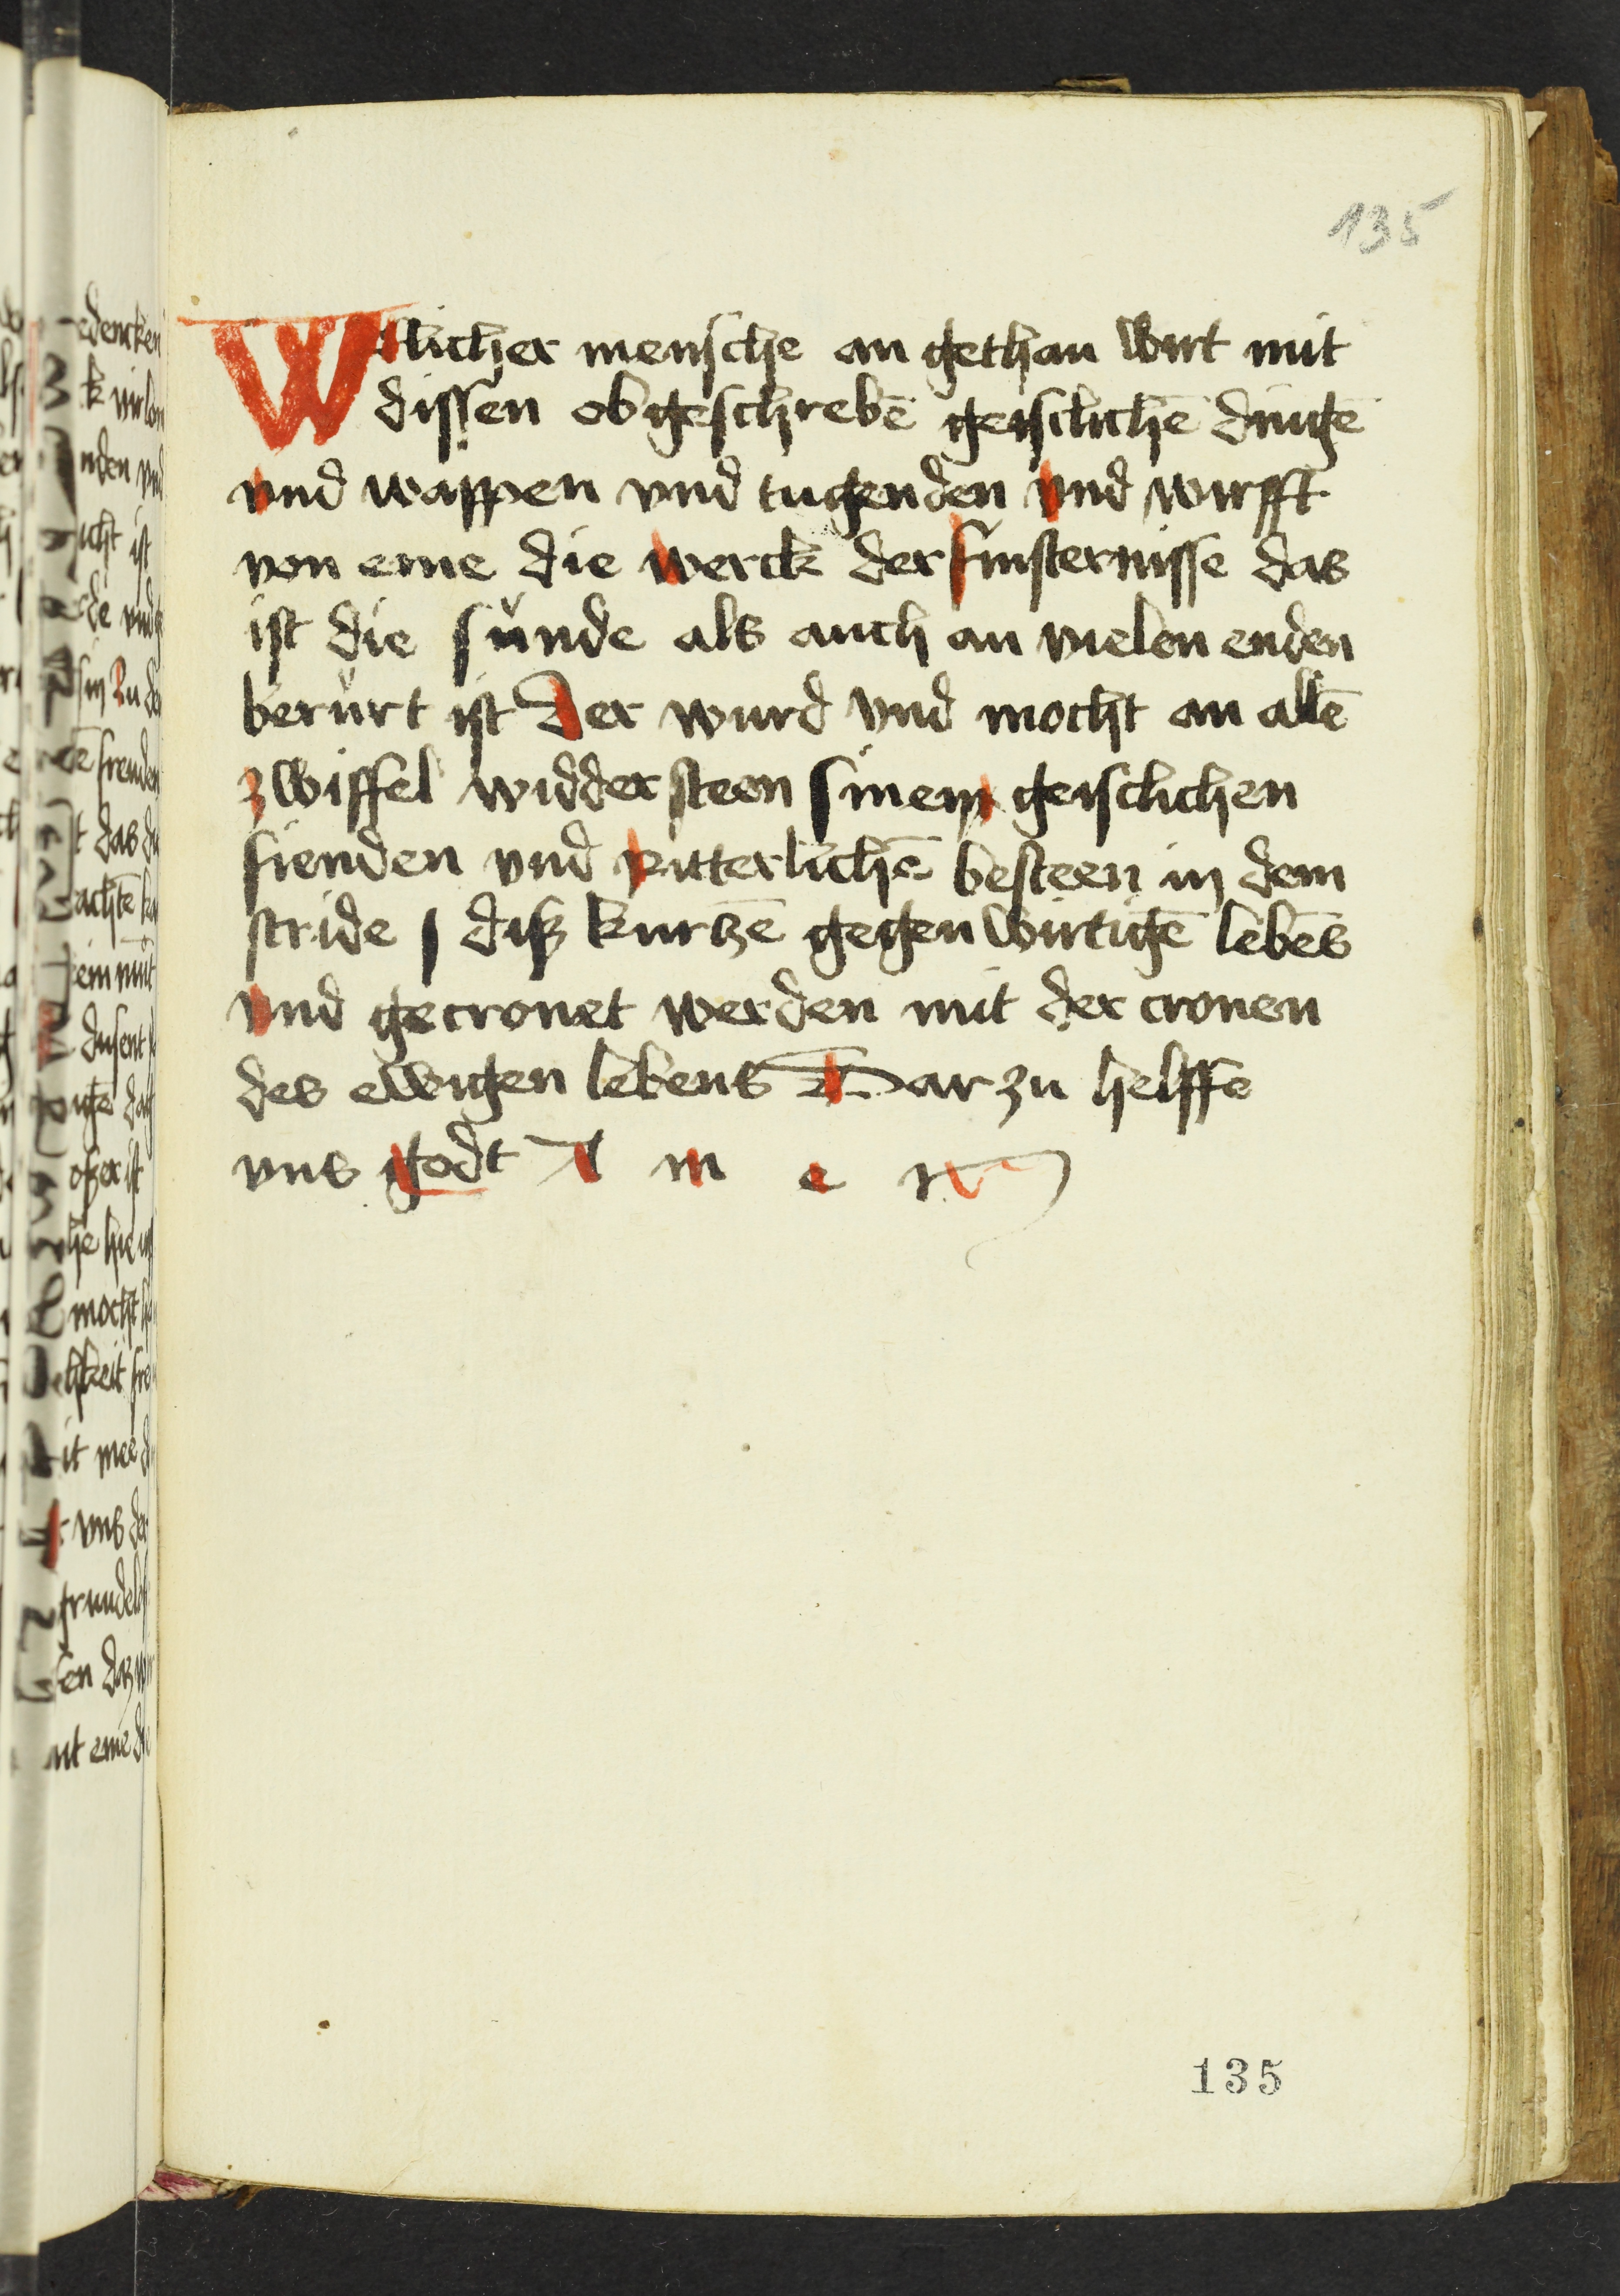 135
Wilicher mensche an gethan wirt mit
dissen obgeschrebē geisclichē dingē
vnd wappen vnd tugenden vnd wirfft
von eme die werck der finsternisse das
ist die sunde als auch an vielen enden
berurt ist Der wurd vnd mocht an allē
zwiffel widdersteen sinem geisclichen
fienden vnd ritterlichē besteen in dem
stride / diß kurtzē gegenwirtigē lebēs
vnd gecronet werden mit der cronen
des ewigen lebens Dar zu helffe
vns godt A m e n
135